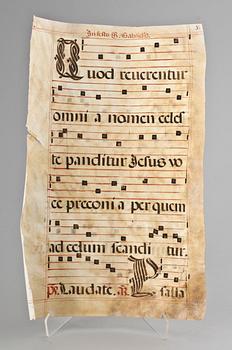 In festo S. Gabrielis.
Quod reuerentur
omni a nomen celes
te panditur Jesus vo
ce preconi a per quem
ad celum scandi tur.
ps. Laudate. A. salia